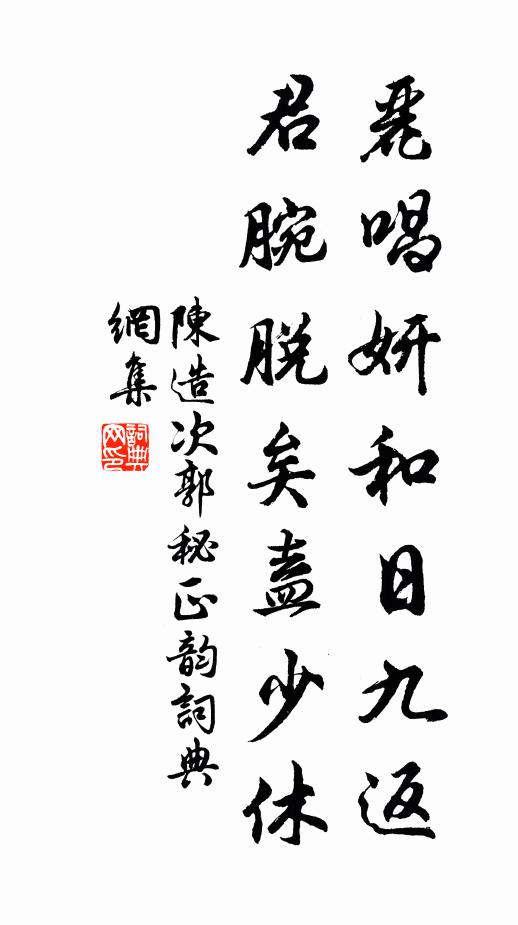 麗唱妍和日九返
君腕脫矣盍少休
陳造次郭秘正韵詞典
網集
詞典網印